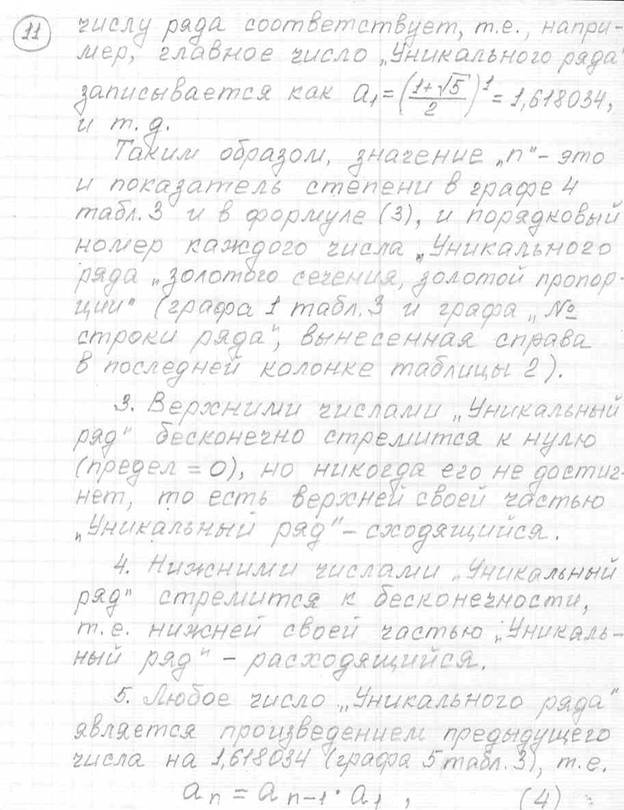 11
числу ряда соответствует, т.е., напри-
мер, главное число „Уникального ряда"
записывается как a₁=((1+√5)/2)¹=1,618034,
и т.д.
Таким образом, значение „n"- это
и показатель степени в графе 4
табл.3 и в формуле (3), и порядковый
номер каждого числа „Уникального
ряда „золотого сечения, золотой пропор-
ции" (графа 1 табл.3 и графа „№
строки ряда", вынесенная справа
в последней колонке таблицы 2).
3. Верхними числами „Уникальный
ряд" бесконечно стремится к нулю
(предел = 0), но никогда его не достиг-
нет, то есть верхней своей частью
„Уникальный ряд" – сходящийся.
4. Нижними числами „Уникальный
ряд" стремится к бесконечности,
т.е. нижней своей частью „Уникаль-
ный ряд" – расходящийся.
5. Любое число „Уникального ряда"
является произведением предыдущего
числа на 1,618034 (графа 5 табл.3), т.е.
aₙ = aₙ₋₁ · a₁ , (4)